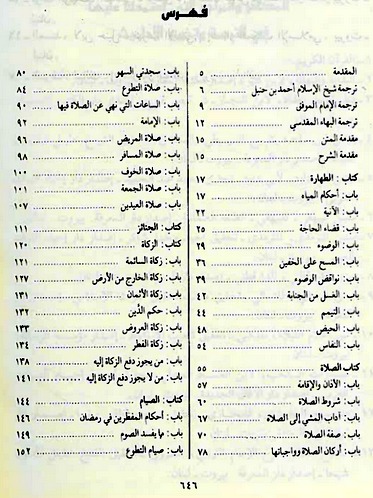 فهرس
المقدمة ٥
ترجمة شيخ الإسلام أحمد بن حنبل ٦
ترجمة الإمام الموفق ٩
ترجمة البهاء المقدسي ١٢
مقدمة المتن ١٥
مقدمة الشرح ١٥
كتاب: الطهارة ١٧
باب: أحكام المياه ١٧
باب: الآنية ٢٢
باب: قضاء الحاجة ٢٥
باب: الوضوء ٢٩
باب: المسح على الخفين ٣٦
باب: نواقض الوضوء ٣٩
باب: الغسل من الجنابة ٤٢
باب: التيمم ٤٤
باب: الحيض ٤٨
باب: النفاس ٥٤
كتاب الصلاة ٥٥
باب: الأذان والإقامة ٥٧
باب: شروط الصلاة ٦٠
باب: آداب المشي إلى الصلاة ٦٧
باب: صفة الصلاة ٧٠
باب: أركان الصلاة وواجباتها ٧٨
باب: سجدتي السهو ٨٠
باب: صلاة التطوع ٨٤
باب: الساعات التي نهي عن الصلاة فيها ٩٠
باب: الإمامة ٩٢
باب: صلاة المريض ٩٦
باب: صلاة المسافر ٩٨
باب: صلاة الخوف ١٠٠
باب: صلاة الجمعة ١٠١
باب: صلاة العيدين ١٠٧
كتاب: الجنائز ١١١
كتاب: الزكاة ١٢٠
باب: زكاة السائمة ١٢١
باب: زكاة الخارج من الأرض ١٢٧
باب: زكاة الأثمان ١٣١
باب: حكم الدَّين ١٣٢
باب: زكاة العروض ١٣٣
باب: زكاة الفطر ١٣٤
باب: من يجوز دفع الزكاة إليه ١٣٨
باب: من لا يجوز دفع الزكاة إليه ١٤١
كتاب: الصيام ١٤٤
باب: أحكام المفطرين في رمضان ١٤٦
باب: ما يفسد الصوم ١٤٩
باب: صيام التطوع ١٥٢
٦٤٦